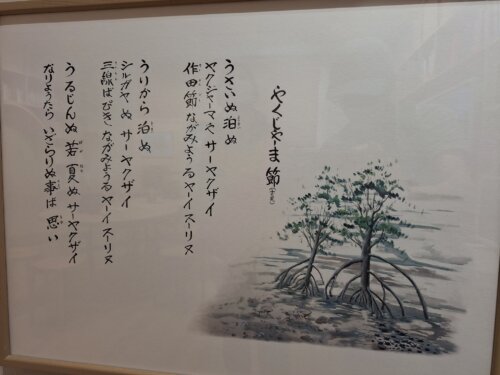 やくじゃーま節
うさいぬ泊ぬ
ヤクジャーマヤ サーヤクザイ
作田節 ながみようるヤーイスーリヌ
うりから 泊ぬ
シルガヤーぬ サーヤクザイ
三線ばぴきながみようるヤーイスーリヌ
うるじんぬ 若夏ぬ サーヤクザイ
なりようたら いざらりぬ事ば 思い